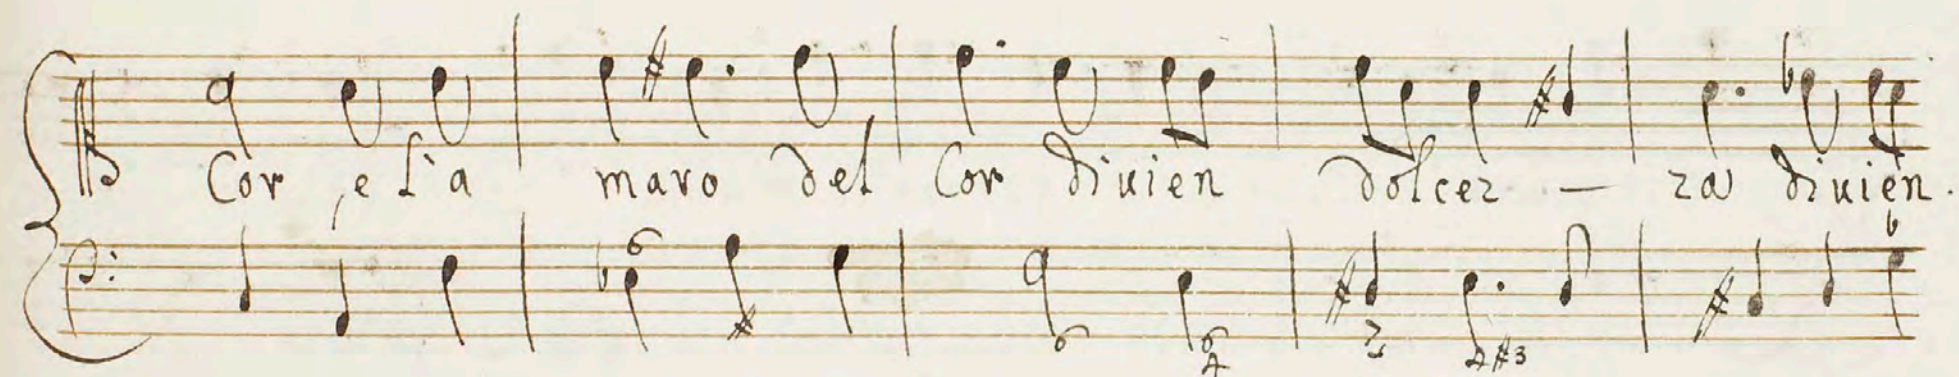 Cor, e l'a maro del Cor diuien dolcez - za diuien.
6 6 6 4 7 4 #3 6